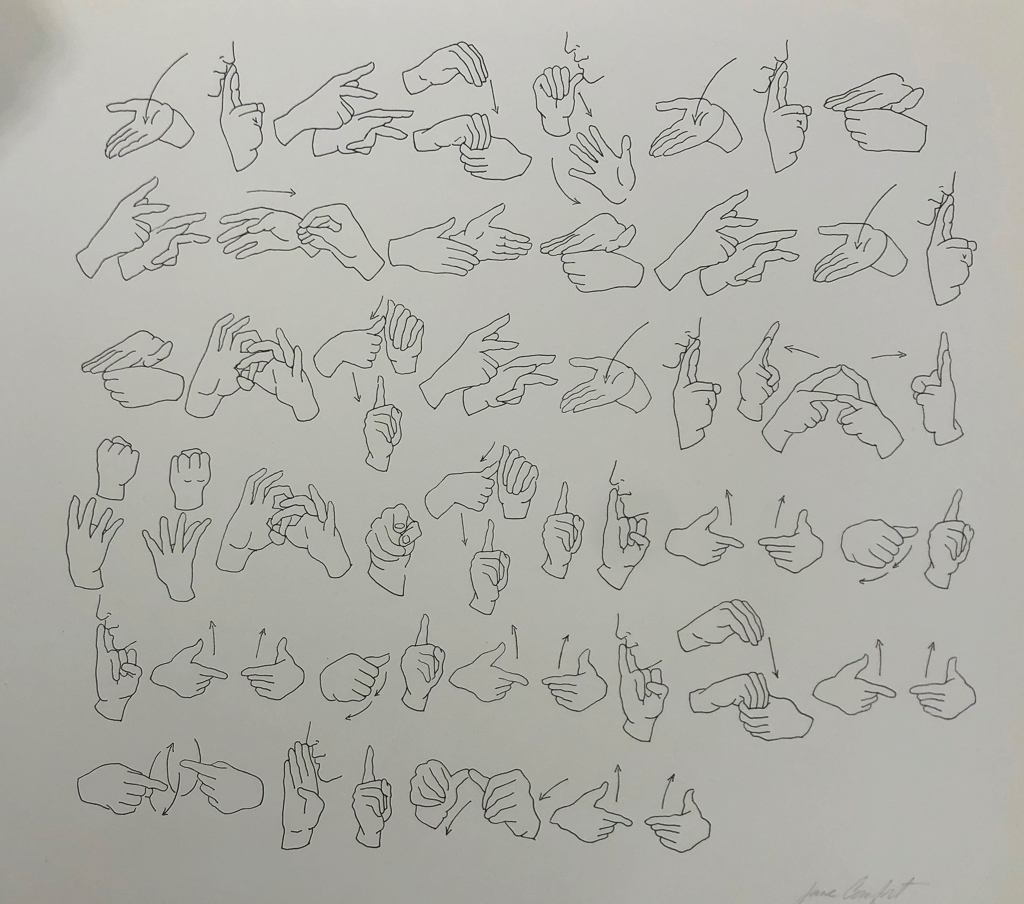 Jane Comfort